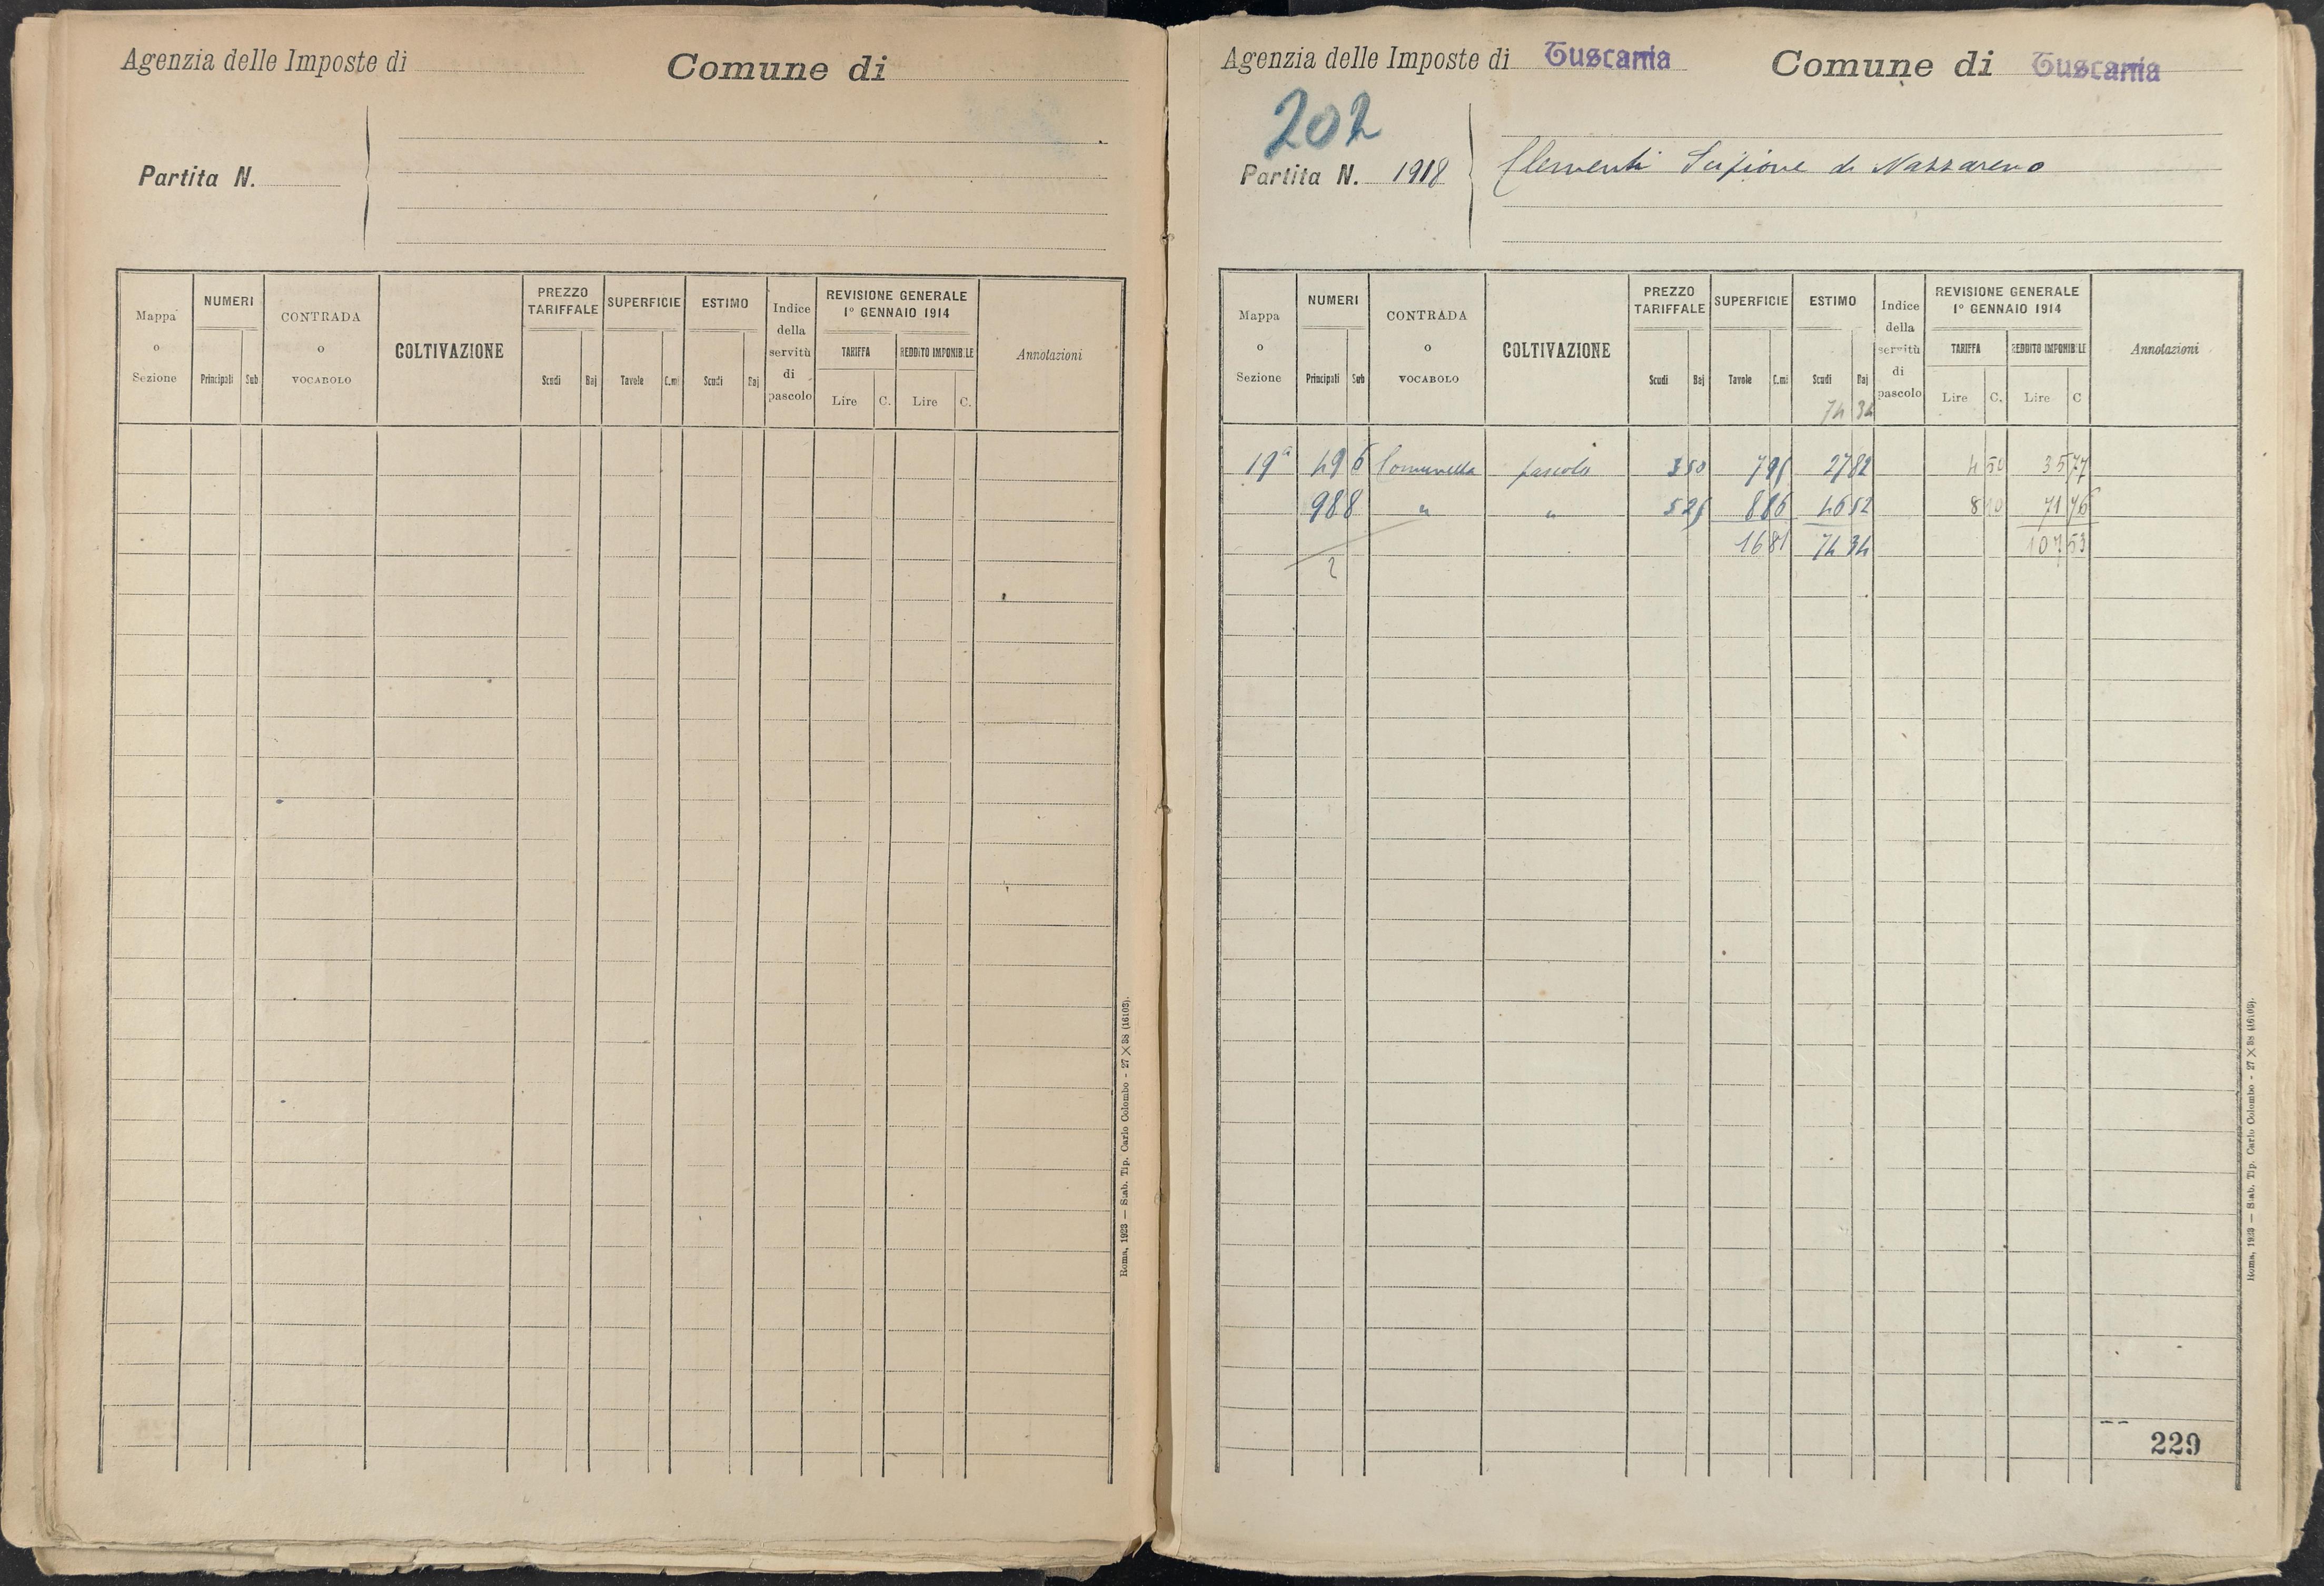 Agenzia delle Imposte di
Comune di
Partita N.
Mappa o Sezione
NUMERI
Principali
Sub
CONTRADA o VOCABOLO
COLTIVAZIONE
PREZZO TARIFFALE
Scudi
Baj
SUPERFICIE
Tavole
C.mi
ESTIMO
Scudi
Baj
Indice della servitù di pascolo
REVISIONE GENERALE
1° GENNAIO 1914
TARIFFA
REDDITO IMPONIBILE
Lire
C.
Lire
C.
Annotazioni
Roma, 1923 — Stab. Tip. Carlo Colombo - 27 X 38 (16103).
Agenzia delle Imposte di Tuscania
Comune di Tuscania
202
Partita N. 1918
Clementi Scipione di Nazzareno
Mappa o Sezione
NUMERI
Principali
Sub
CONTRADA o VOCABOLO
COLTIVAZIONE
PREZZO TARIFFALE
Scudi
Baj
SUPERFICIE
Tavole
C.mi
ESTIMO
Scudi
Baj
74 34
Indice della servitù di pascolo
REVISIONE GENERALE
1° GENNAIO 1914
TARIFFA
REDDITO IMPONIBILE
Lire
C.
Lire
C
Annotazioni
19a 496 Comunella pascolo 3 50 7 95 27 82 4 50 35 77
988 " " 5 25 8 86 46 52 8 10 71 76
16 81 74 34 107 53
2
229
Roma, 1923 — Stab. Tip. Carlo Colombo - 27 X 38 (16103).